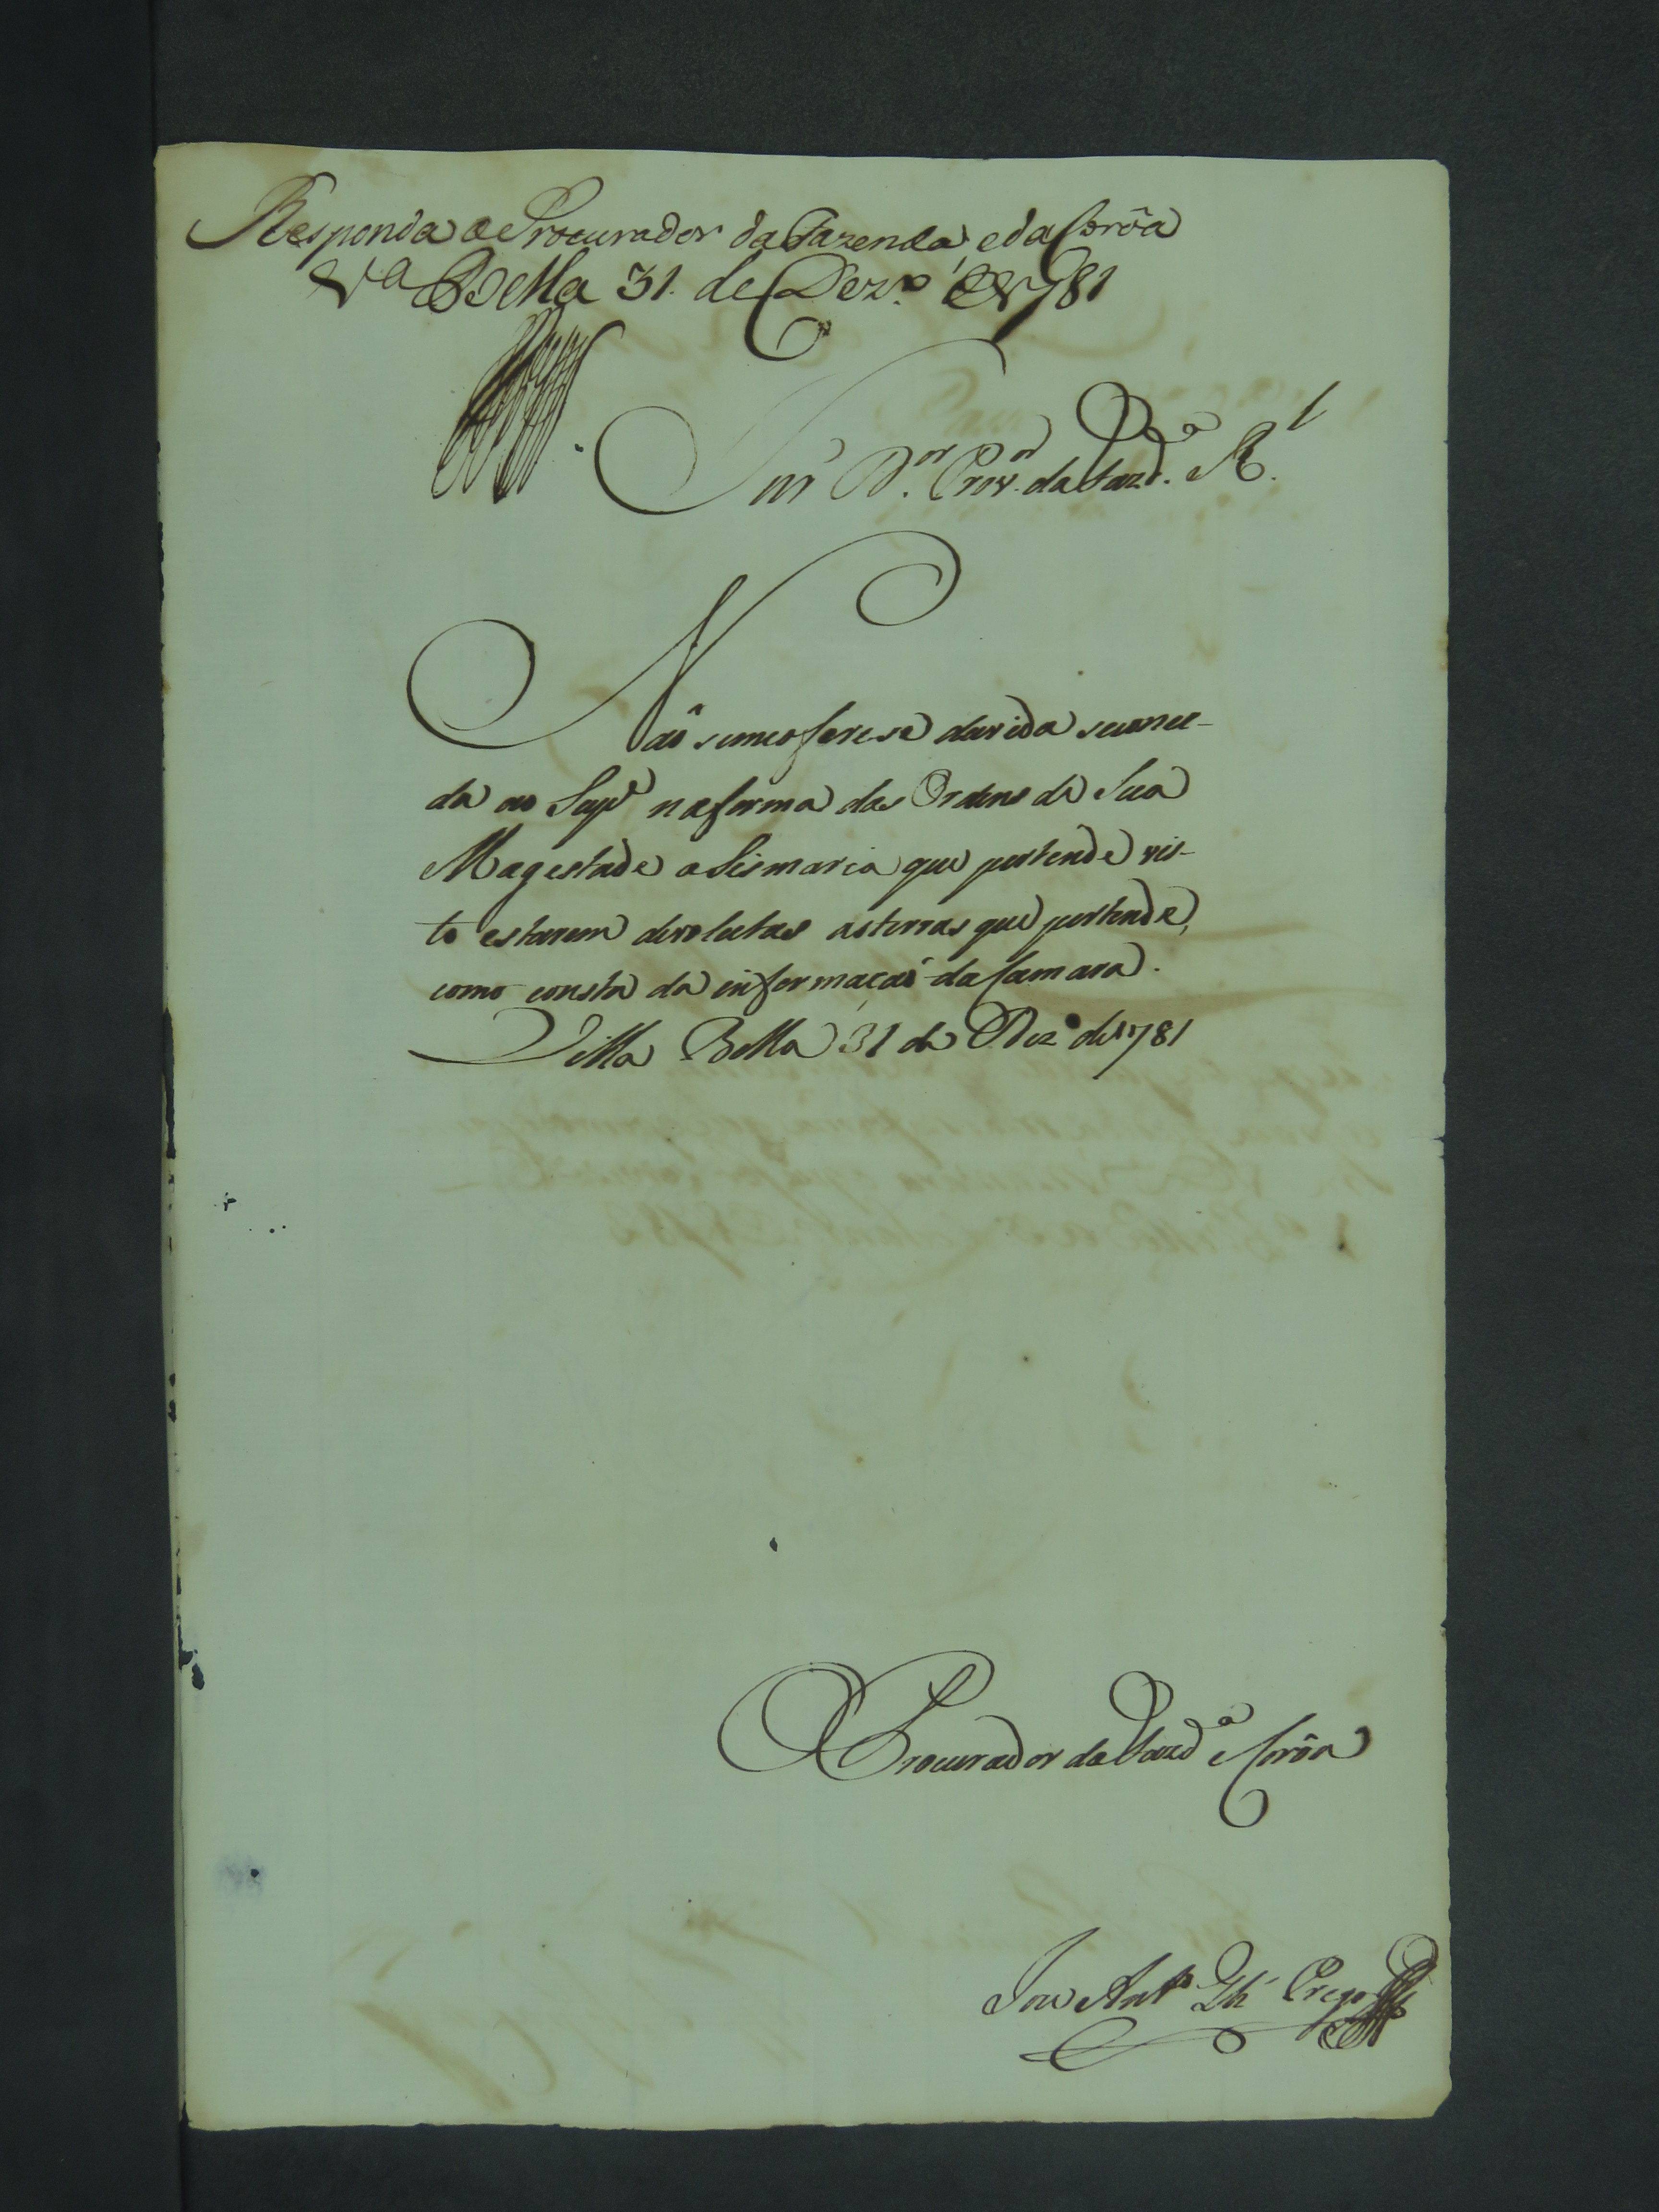 Responda o Procurador da Fazenda, e da Corôa
Va Bella 31. de Dezro de 1781
Snr Dor. Provor. da Fazda. Rl.
Naõ se me oferese duvida se conce-
da ao Supe na forma das Ordens de Sua
Magestade a Sismaria que pertende vis-
to estarem devolutas as terras que pertende,
como consta da informaçaõ da Camara.
Villa Bella 31 de Dezo de 1781
O Procurador da Fazda e Corôa
Anto